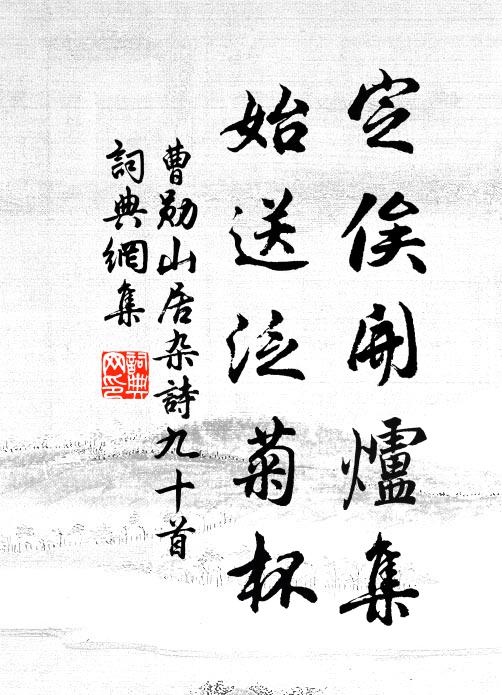 定俟開爐集
始送泛菊杯
曹勛山居杂詩九十首
詞典網集
詞典
网印